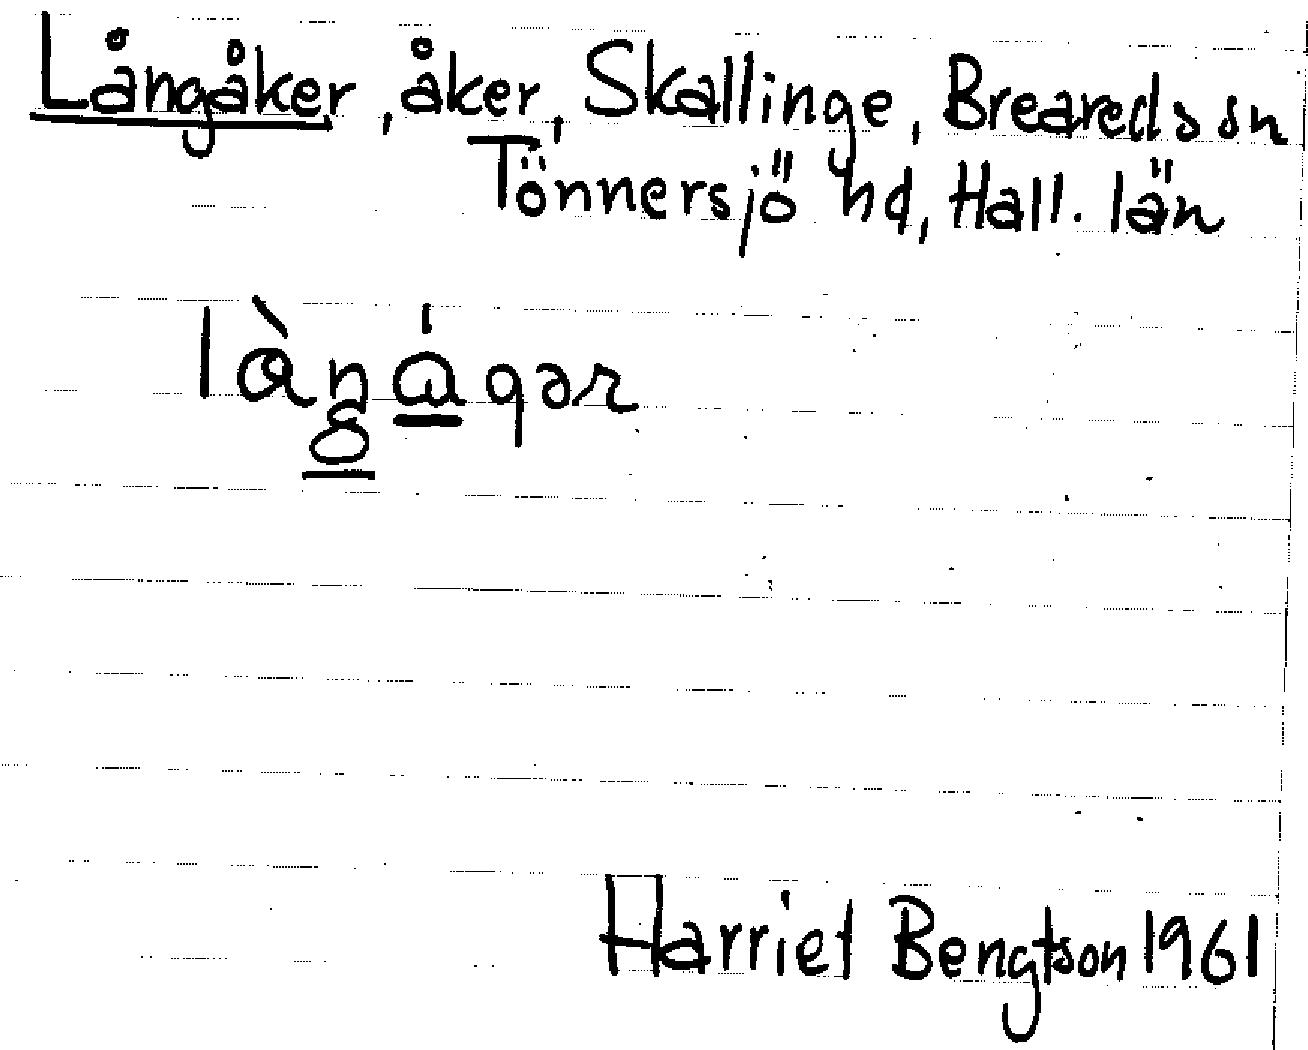 Långåker, åker, Skallinge, Breareds sn
Tönnersjö hd, Hall. län
làŋgágər
Harriet Bengtson 1961